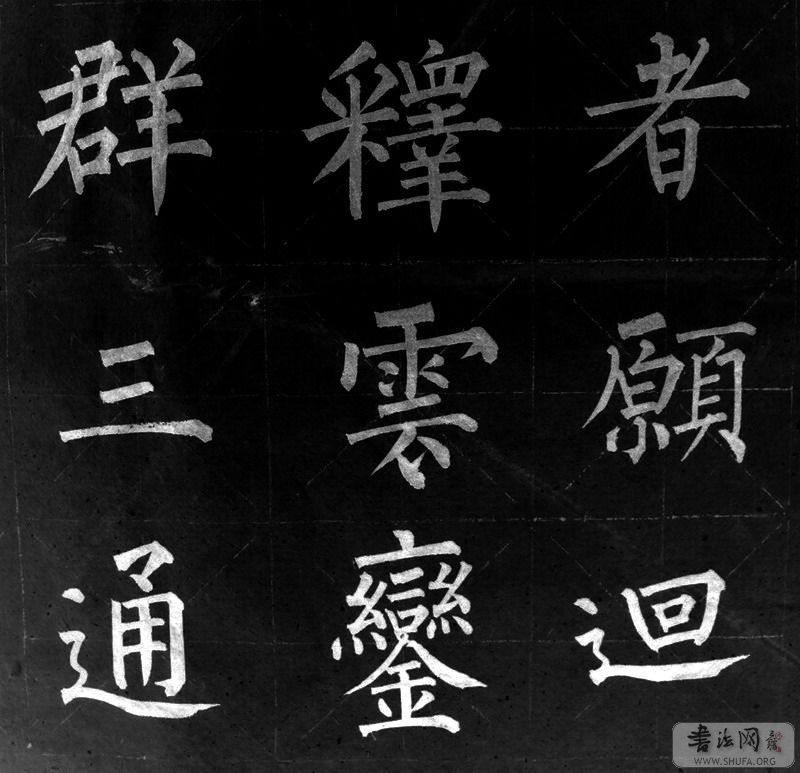 者願迴
釋雲鑾
群三通
书法网
WWW.SHUFA.ORG